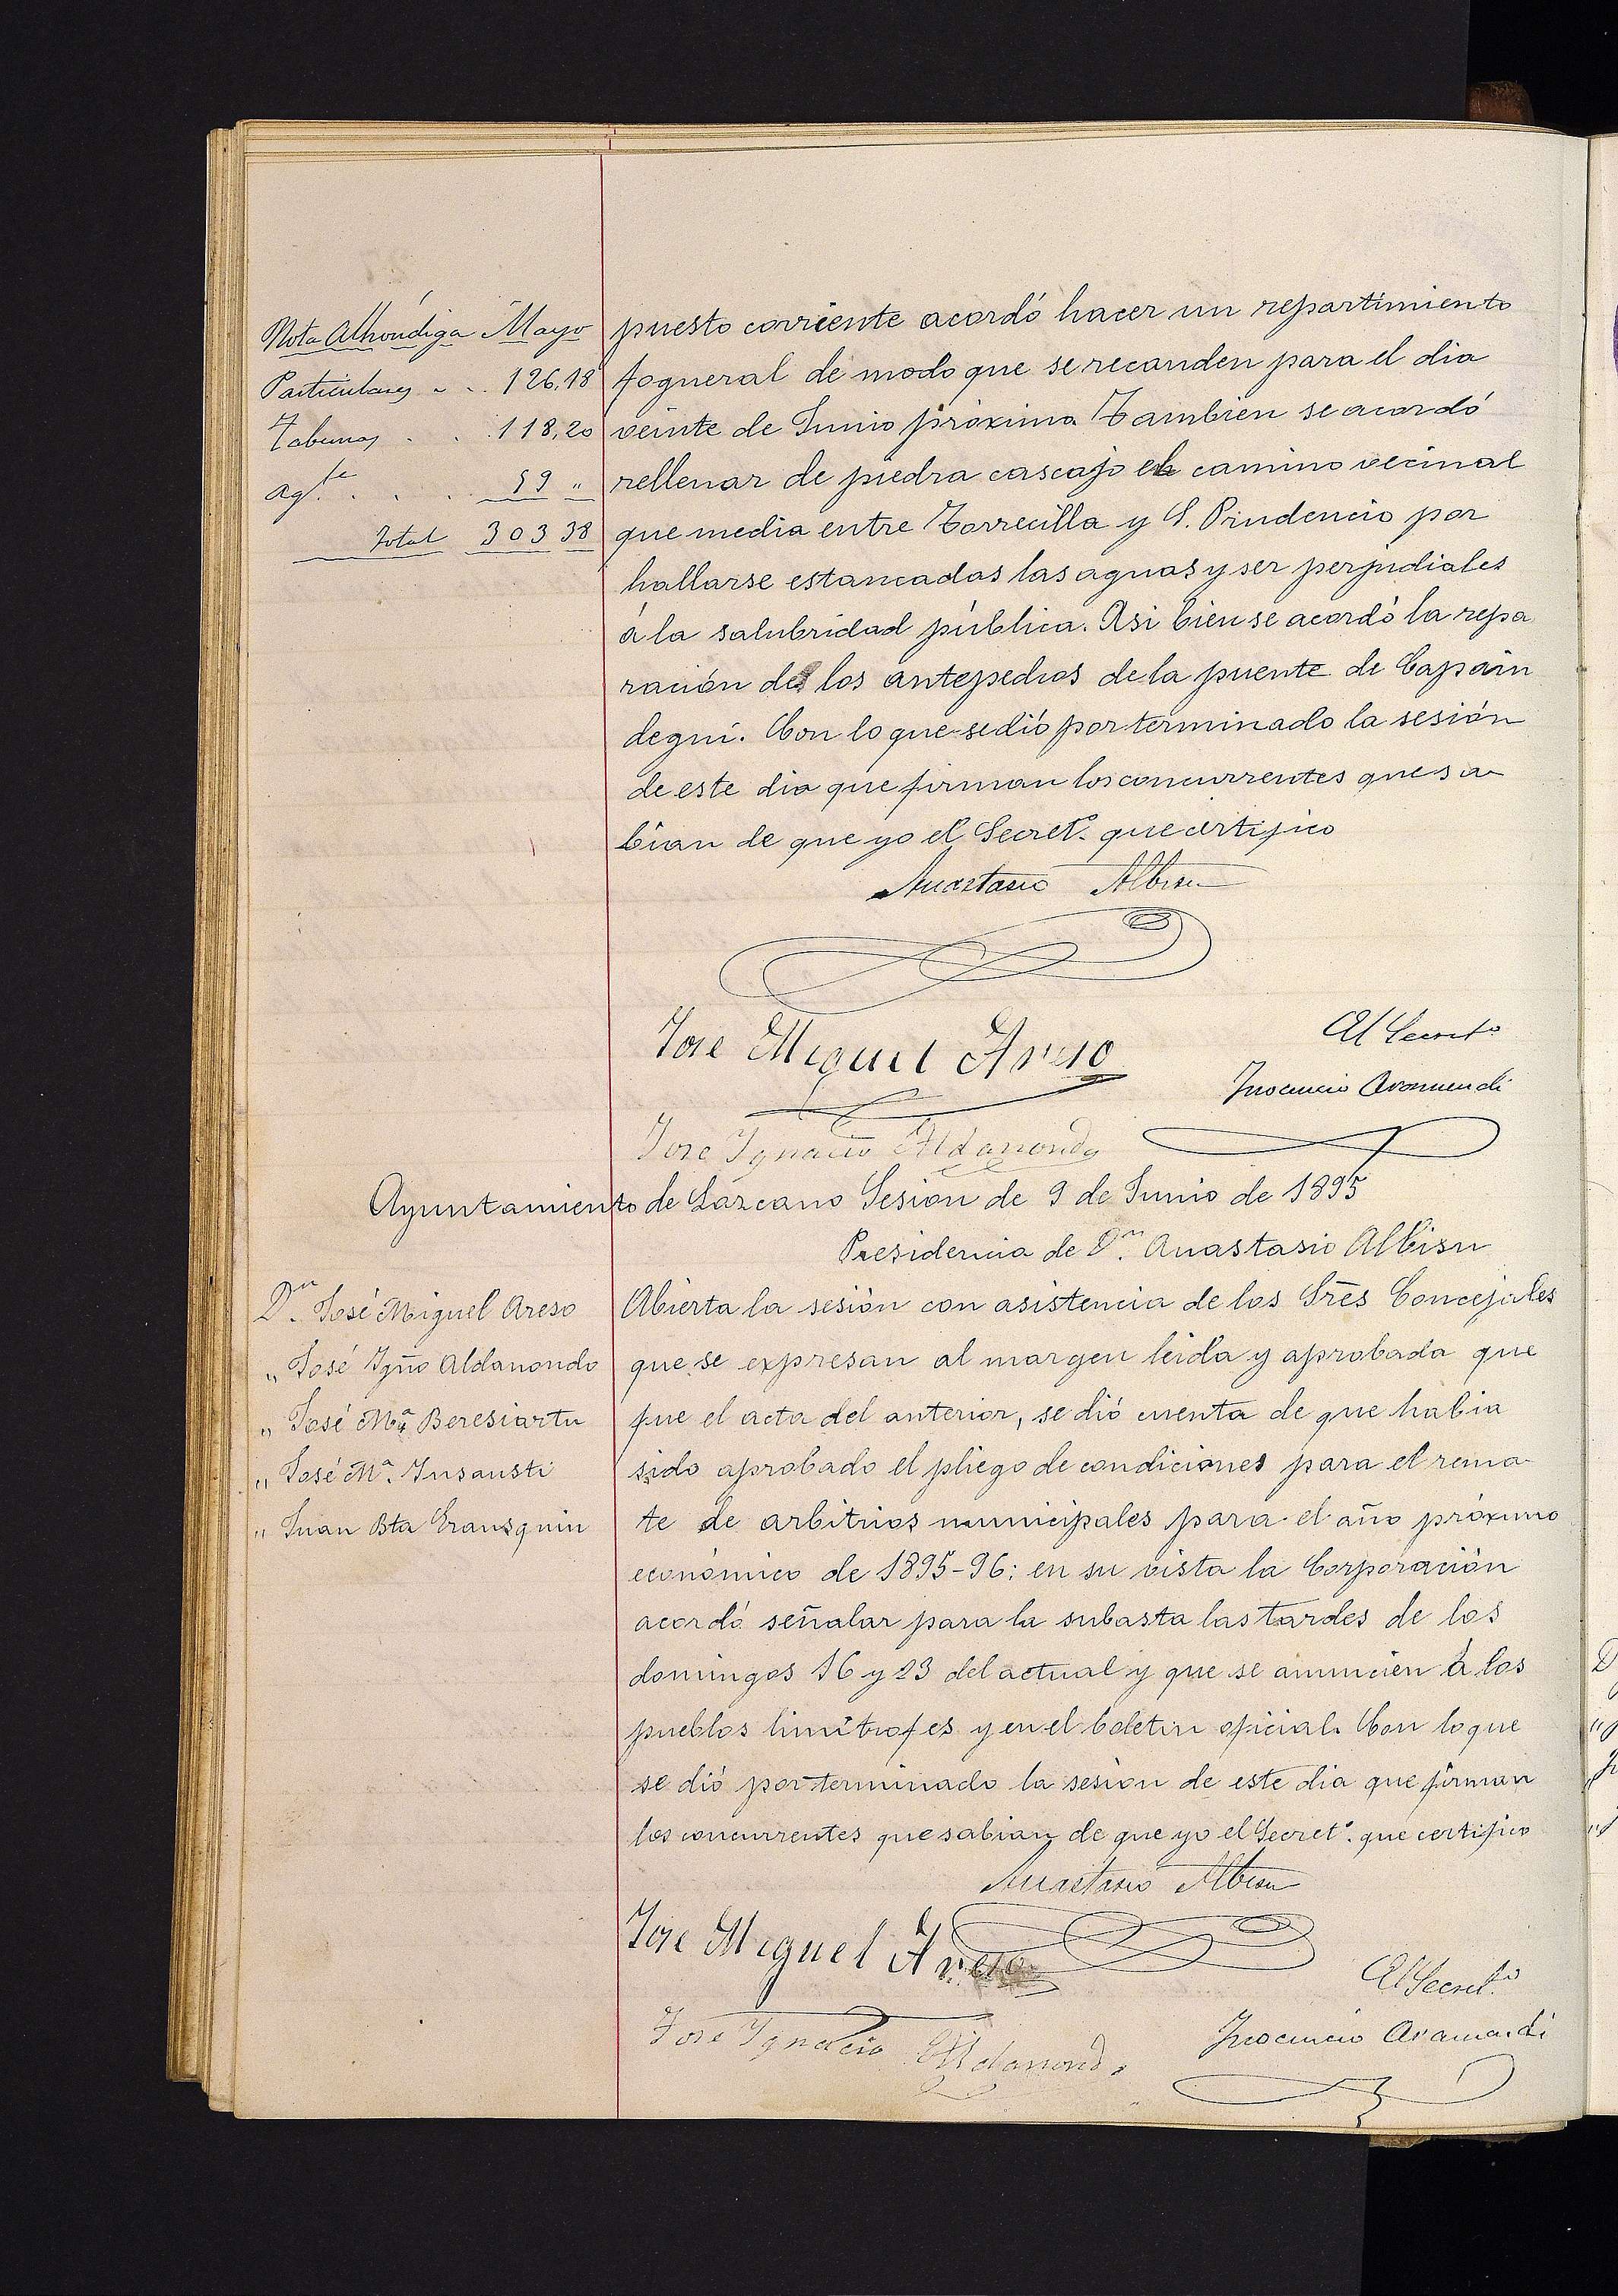 Nota Alhóndiga Mayo
Particulares 126,18
Tabernas . . . 118,20
Agte. . . . 59 "
Total 303 38
puesto corriente acordó hacer un repartimiento
fogueral de modo que se recauden para el dia
veinte de Junio próximo. Tambien se acordó
rellenar de piedra cascajo el camino vecinal
que media entre Torrecilla y S. Prudencio por
hallarse estancadas las aguas y ser perjudiales
á la salubridad pública. Asi bien se acordó la repa
ración de los antepedios de la puente de Capain
degui. Con lo que se dió por terminado la sesión
de este dia que firman los concurrentes que sa
bian de que yo el Secreto. que certifico
Anastasio Albisu
Jose Miguel Areso
El Secreto
Inocencio Aramendi
Jose Ignacio Aldanondo
Ayuntamiento de Lazcano Sesión de 9 de Junio de 1895
Presidencia de Dn. Anastasio Albisu
Dn. José Miguel Areso
" José Ygño Aldanondo
" José Ma Beresiartu
" José Ma. Insausti
" Juan Bta Eransquin
Abierta la sesión con asistencia de los Sres Concejales
que se expresan al margen leida y aprobada que
fue el acta del anterior, se dió cuenta de que habia
sido aprobado el pliego de condiciones para el rema-
te de arbitrios municipales para el año próximo
económico de 1895-96: en su vista la Corporación
acordó señalar para la subasta las tardes de los
domingos 16 y 23 del actual y que se anuncien á los
pueblos limitrofes y en el boletin oficial. Con lo que
se dió por terminado la sesión de este dia que firman
los concurrentes que sabian de que yo el Secreto. que certifico
Anastasio Albisu
Jose Miguel Areso
El Secreto
Jose Ignacio Aldanondo
Inocencio Aramendi